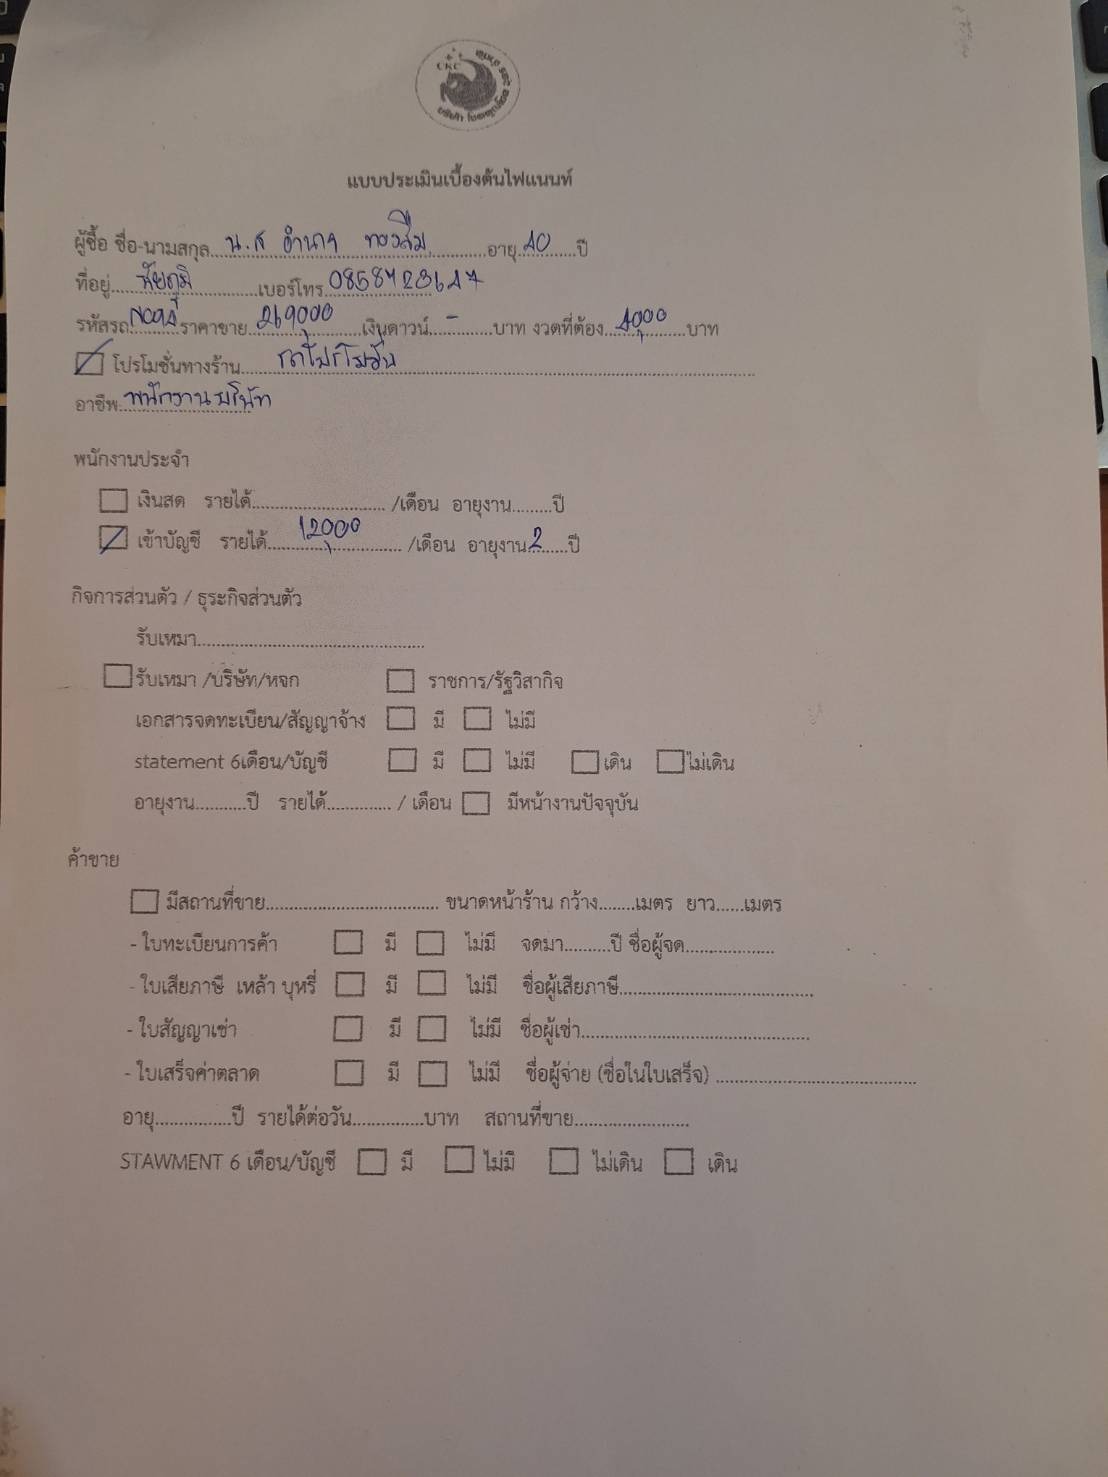 CKC
แบบประเมินเบื้องต้นไฟแนนท์
ผู้ซื้อ ชื่อ-นามสกุล น.ส อำนาจ ทองสิม อายุ 40 ปี
ที่อยู่ ชัยภูมิ เบอร์โทร
รหัสรถ ราคาขาย 269000 เงินดาวน์ - บาท งวดที่ต้อง 4000 บาท
โปรโมชั่นทางร้าน รถโปรโมชั่น
อาชีพ พนักงานบริษัท
พนักงานประจำ
เงินสด รายได้ /เดือน อายุงาน ปี
เข้าบัญชี รายได้ 12000 /เดือน อายุงาน 2 ปี
กิจการส่วนตัว / ธุระกิจส่วนตัว
รับเหมา
รับเหมา /บริษัท/หจก ราชการ/รัฐวิสากิจ
เอกสารจดทะเบียน/สัญญาจ้าง มี ไม่มี
statement 6เดือน/บัญชี มี ไม่มี เดิน ไม่เดิน
อายุงาน ปี รายได้ / เดือน มีหน้างานปัจจุบัน
ค้าขาย
มีสถานที่ขาย ขนาดหน้าร้าน กว้าง เมตร ยาว เมตร
- ใบทะเบียนการค้า มี ไม่มี จดมา ปี ชื่อผู้จด
- ใบเสียภาษี เหล้า บุหรี่ มี ไม่มี ชื่อผู้เสียภาษี
- ใบสัญญาเช่า มี ไม่มี ชื่อผู้เช่า
- ใบเสร็จค่าตลาด มี ไม่มี ชื่อผู้จ่าย (ชื่อในใบเสร็จ)
อายุ ปี รายได้ต่อวัน บาท สถานที่ขาย
STAWMENT 6 เดือน/บัญชี มี ไม่มี ไม่เดิน เดิน